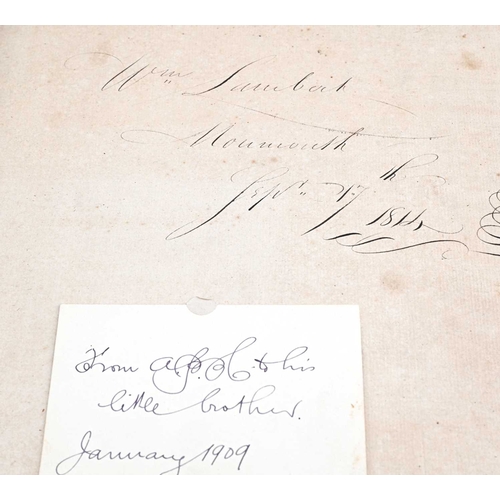 Wm Lambert
Monmouth
Sepr 17th
1814
From A.G.H. to his
little brother.
January 1909